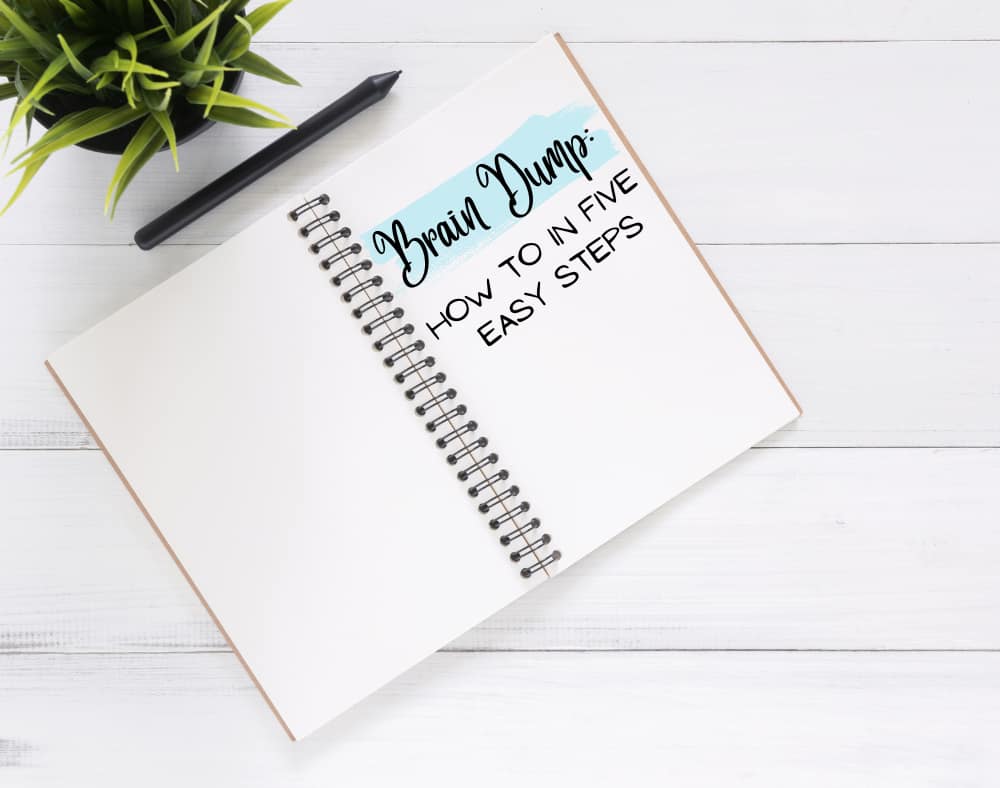 Brain Dump:
HOW TO IN FIVE
EASY STEPS